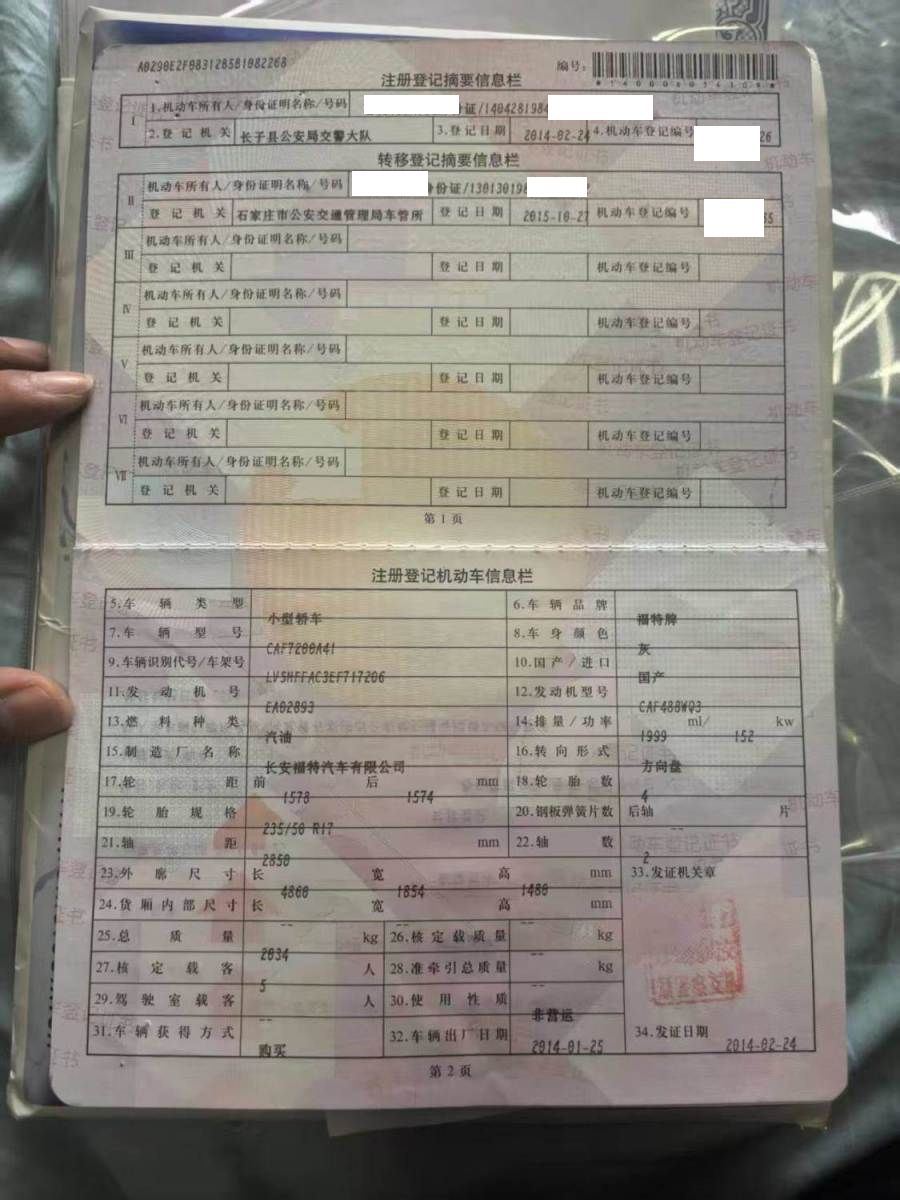 A0290E2F0831285B1082268
编号:
注册登记摘要信息栏
I 1.机动车所有人/身份证明名称/号码 证/1404281984
2.登记机关 长子县公安局交警大队 3.登记日期 2014-02-24 4.机动车登记编号
转移登记摘要信息栏
II 机动车所有人/身份证明名称/号码 身份证/130130198
登记机关 石家庄市公安交通管理局车管所 登记日期 2015-10-27 机动车登记编号
III 机动车所有人/身份证明名称/号码
登记机关 登记日期 机动车登记编号
IV 机动车所有人/身份证明名称/号码
登记机关 登记日期 机动车登记编号
V 机动车所有人/身份证明名称/号码
登记机关 登记日期 机动车登记编号
VI 机动车所有人/身份证明名称/号码
登记机关 登记日期 机动车登记编号
VII 机动车所有人/身份证明名称/号码
登记机关 登记日期 机动车登记编号
第1页
注册登记机动车信息栏
5.车辆类型 小型轿车 6.车辆品牌 福特牌
7.车辆型号 CAF7200A41 8.车身颜色 灰
9.车辆识别代号/车架号 LVSHFFAC3EF717206 10.国产/进口 国产
11.发动机号 EA02893 12.发动机型号 CAF488WQ3
13.燃料种类 汽油 14.排量/功率 1999 ml/ 152 kw
15.制造厂名称 长安福特汽车有限公司 16.转向形式 方向盘
17.轮距 前 1578 后 1574 mm 18.轮胎数 4
19.轮胎规格 235/50 R17 20.钢板弹簧片数 后轴 -- 片
21.轴距 2850 mm 22.轴数 2
23.外廓尺寸 长 4860 宽 1854 高 1480 mm 33.发证机关章
24.货厢内部尺寸 长 -- 宽 -- 高 -- mm
25.总质量 2034 kg 26.核定载质量 -- kg
27.核定载客 5 人 28.准牵引总质量 -- kg
29.驾驶室载客 -- 人 30.使用性质 非营运
31.车辆获得方式 购买 32.车辆出厂日期 2014-01-25 34.发证日期 2014-02-24
第2页